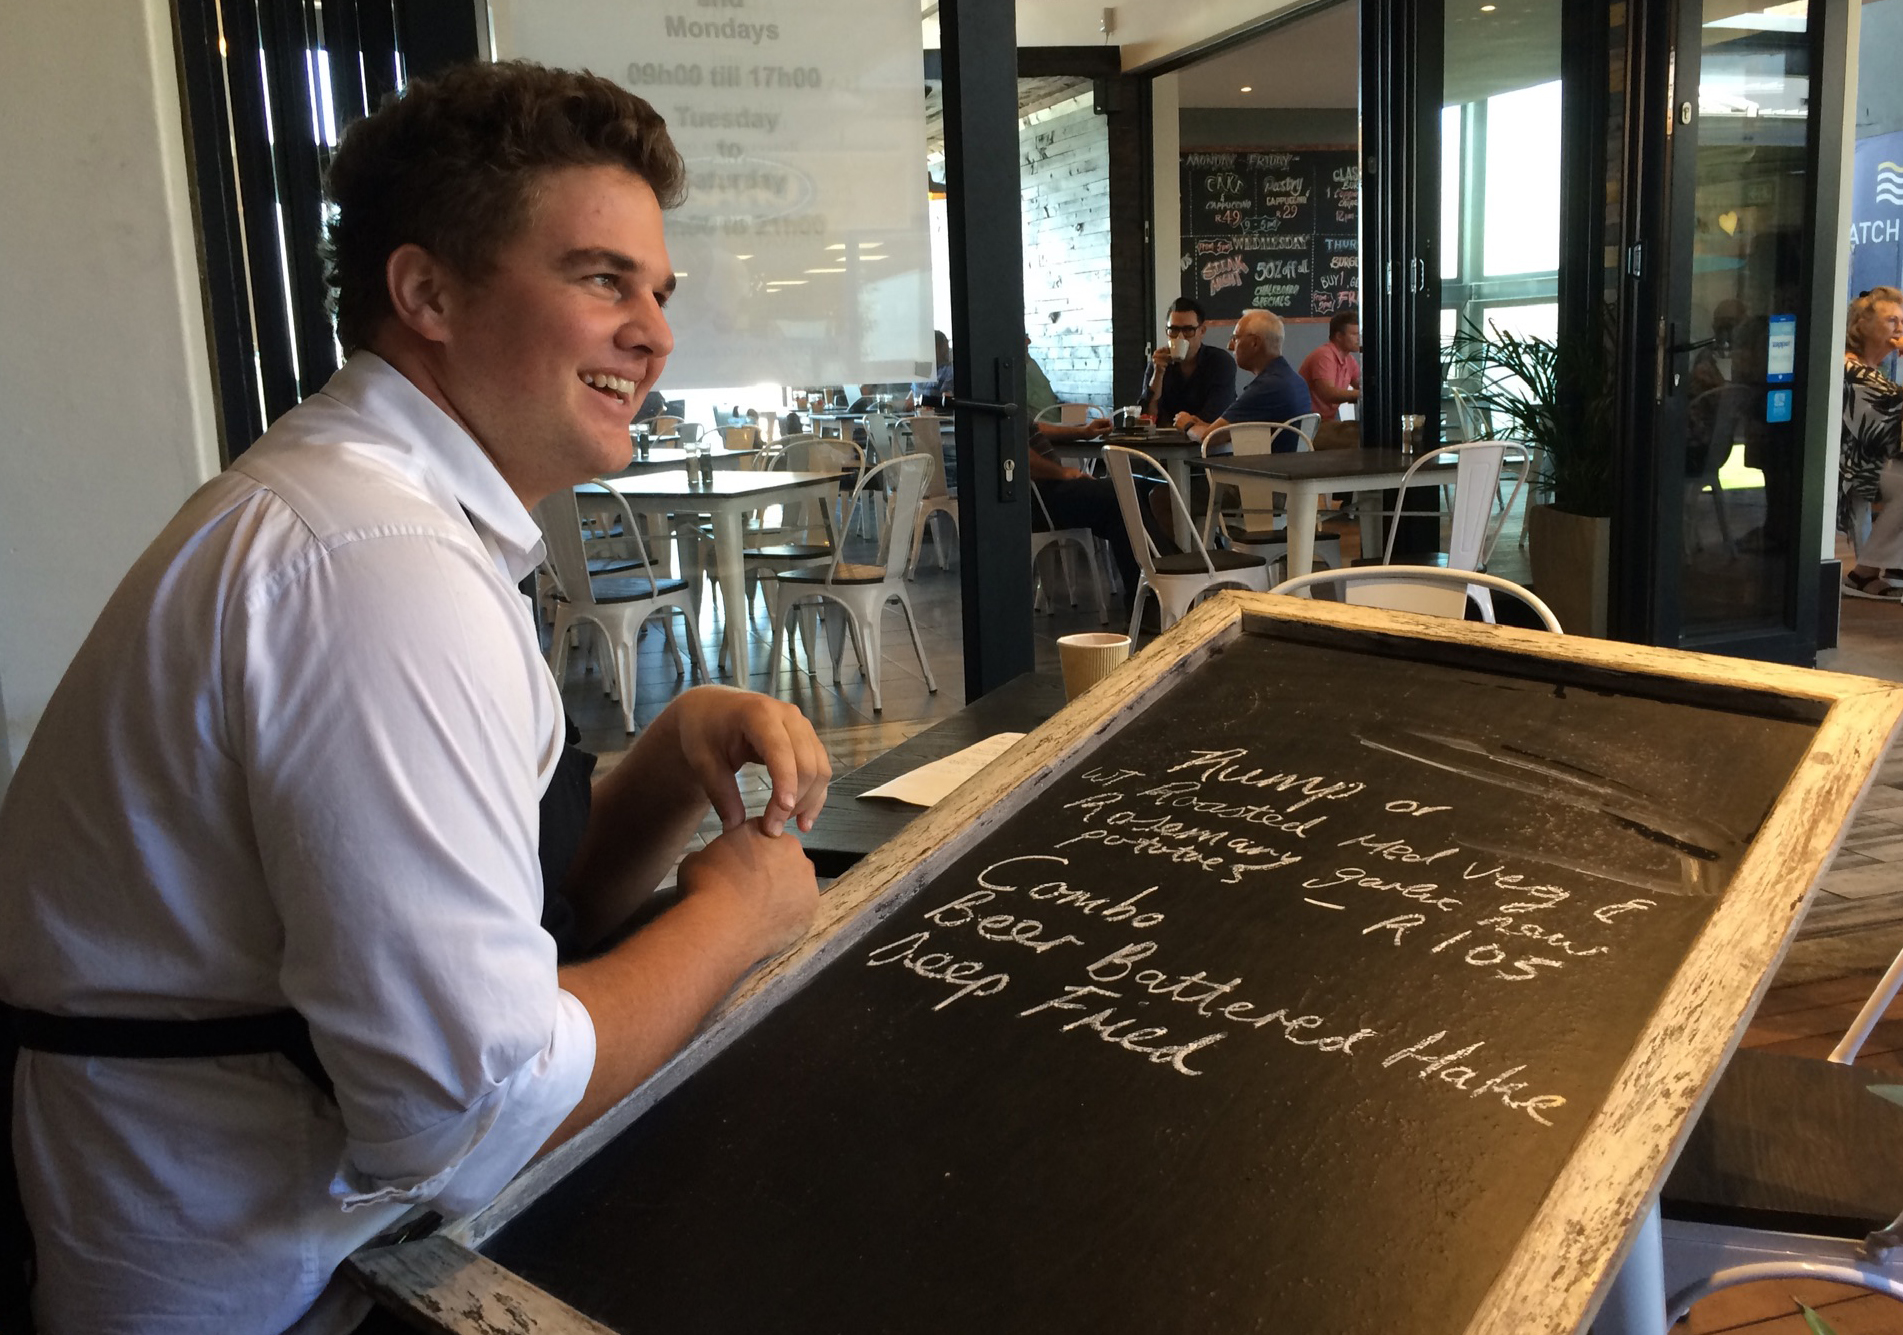 and
Mondays
09h00 till 17h00
Tuesday
to
Saturday
to 21h00
MONDAY - FRIDAY
CAKE
&
CAPPUCCINO
R49
Pastry
CAPPUCCINO
R29
2 - 5pm
WEDNESDAY
STEAK
NIGHT
50% off all
CHALKBOARD
SPECIALS
THUR
BURGE
BUY 1, GE
FR
ATCH
Rump or
WT Roasted Med Veg &
Rosemary garlic
potatoes — R105
Combo
Beer Battered Hake
Deep Fried